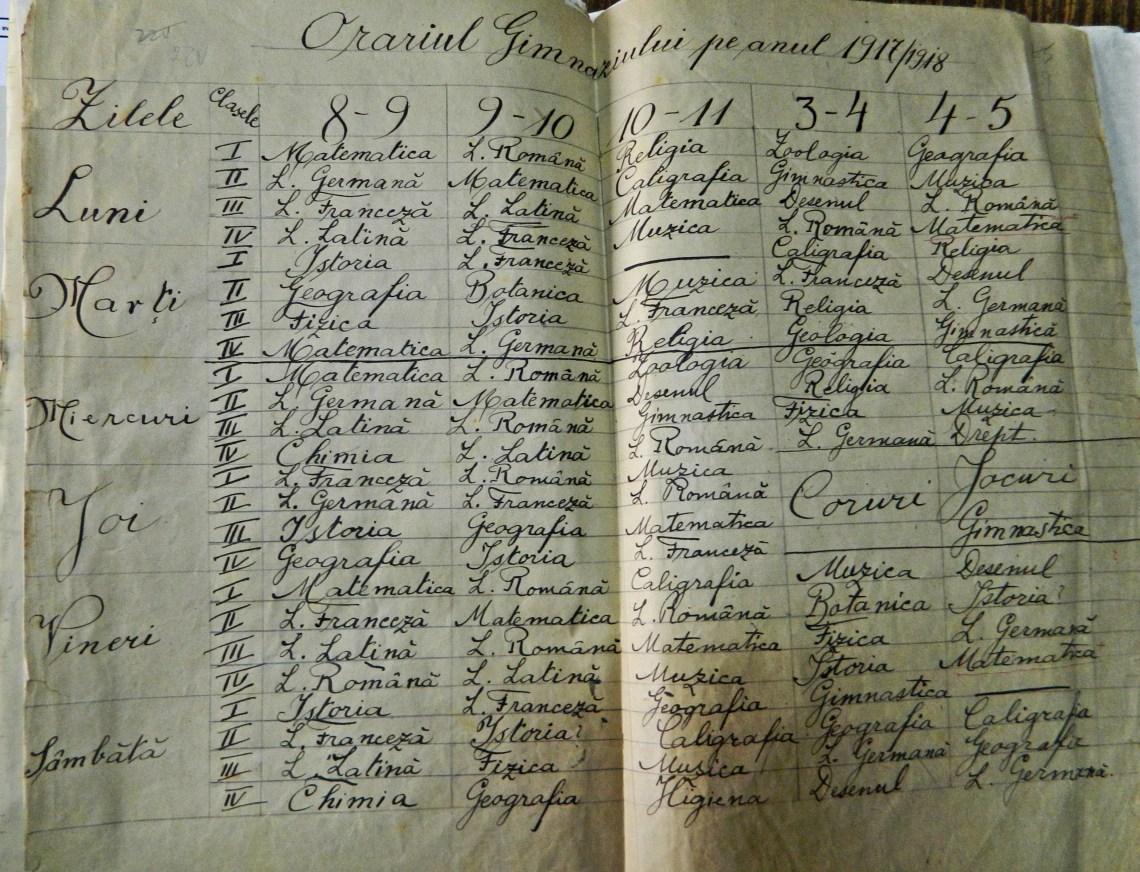 Orariul Gimnaziului pe anul 1917/1918
Zilele Clasele 8-9 9-10 10-11 3-4 4-5
I Matematica L. Română Religia Zoologia Geografia
II L. Germană Matematica Caligrafia Gimnastica Muzica
Luni III L. Franceză L. Latină Matematica Desenul L. Română
IV L. Latină L. Franceză Muzica L. Română Matematica
I Istoria L. Franceză — Caligrafia Religia
Marți II Geografia Botanica Muzica L. Franceză Desenul
III Fizica Istoria L. Franceză Religia L. Germană
IV Matematica L. Germană Religia Geologia Gimnastică
I Matematica L. Română Zoologia Geografia Caligrafia
Miercuri II L. Germană Matematica Desenul Religia L. Română
III L. Latină L. Română Gimnastica Fizica Muzica
IV Chimia L. Latină L. Română L. Germană Drept.
I L. Franceză L. Română Muzica
Joi II L. Germănă L. Franceză L. Română Coruri Jocuri
III Istoria Geografia Matematica Gimnastica
IV Geografia Istoria L. Franceză
I Matematica L. Română Caligrafia Muzica Desenul
Vineri II L. Franceză Matematica L. Română Botanica Istoria?
III L. Latină L. Română Matematica Fizica L. Germană
IV L. Română L. Latină Muzica Istoria Matematica
I Istoria L. Franceză Geografia Gimnastica —
Sâmbătă II L. Franceză Istoria? Caligrafia Geografia Caligrafia
III L. Latină Fizica Musica L. Germană Geografia
IV Chimia Geografia Higiena Desenul L. Germană.